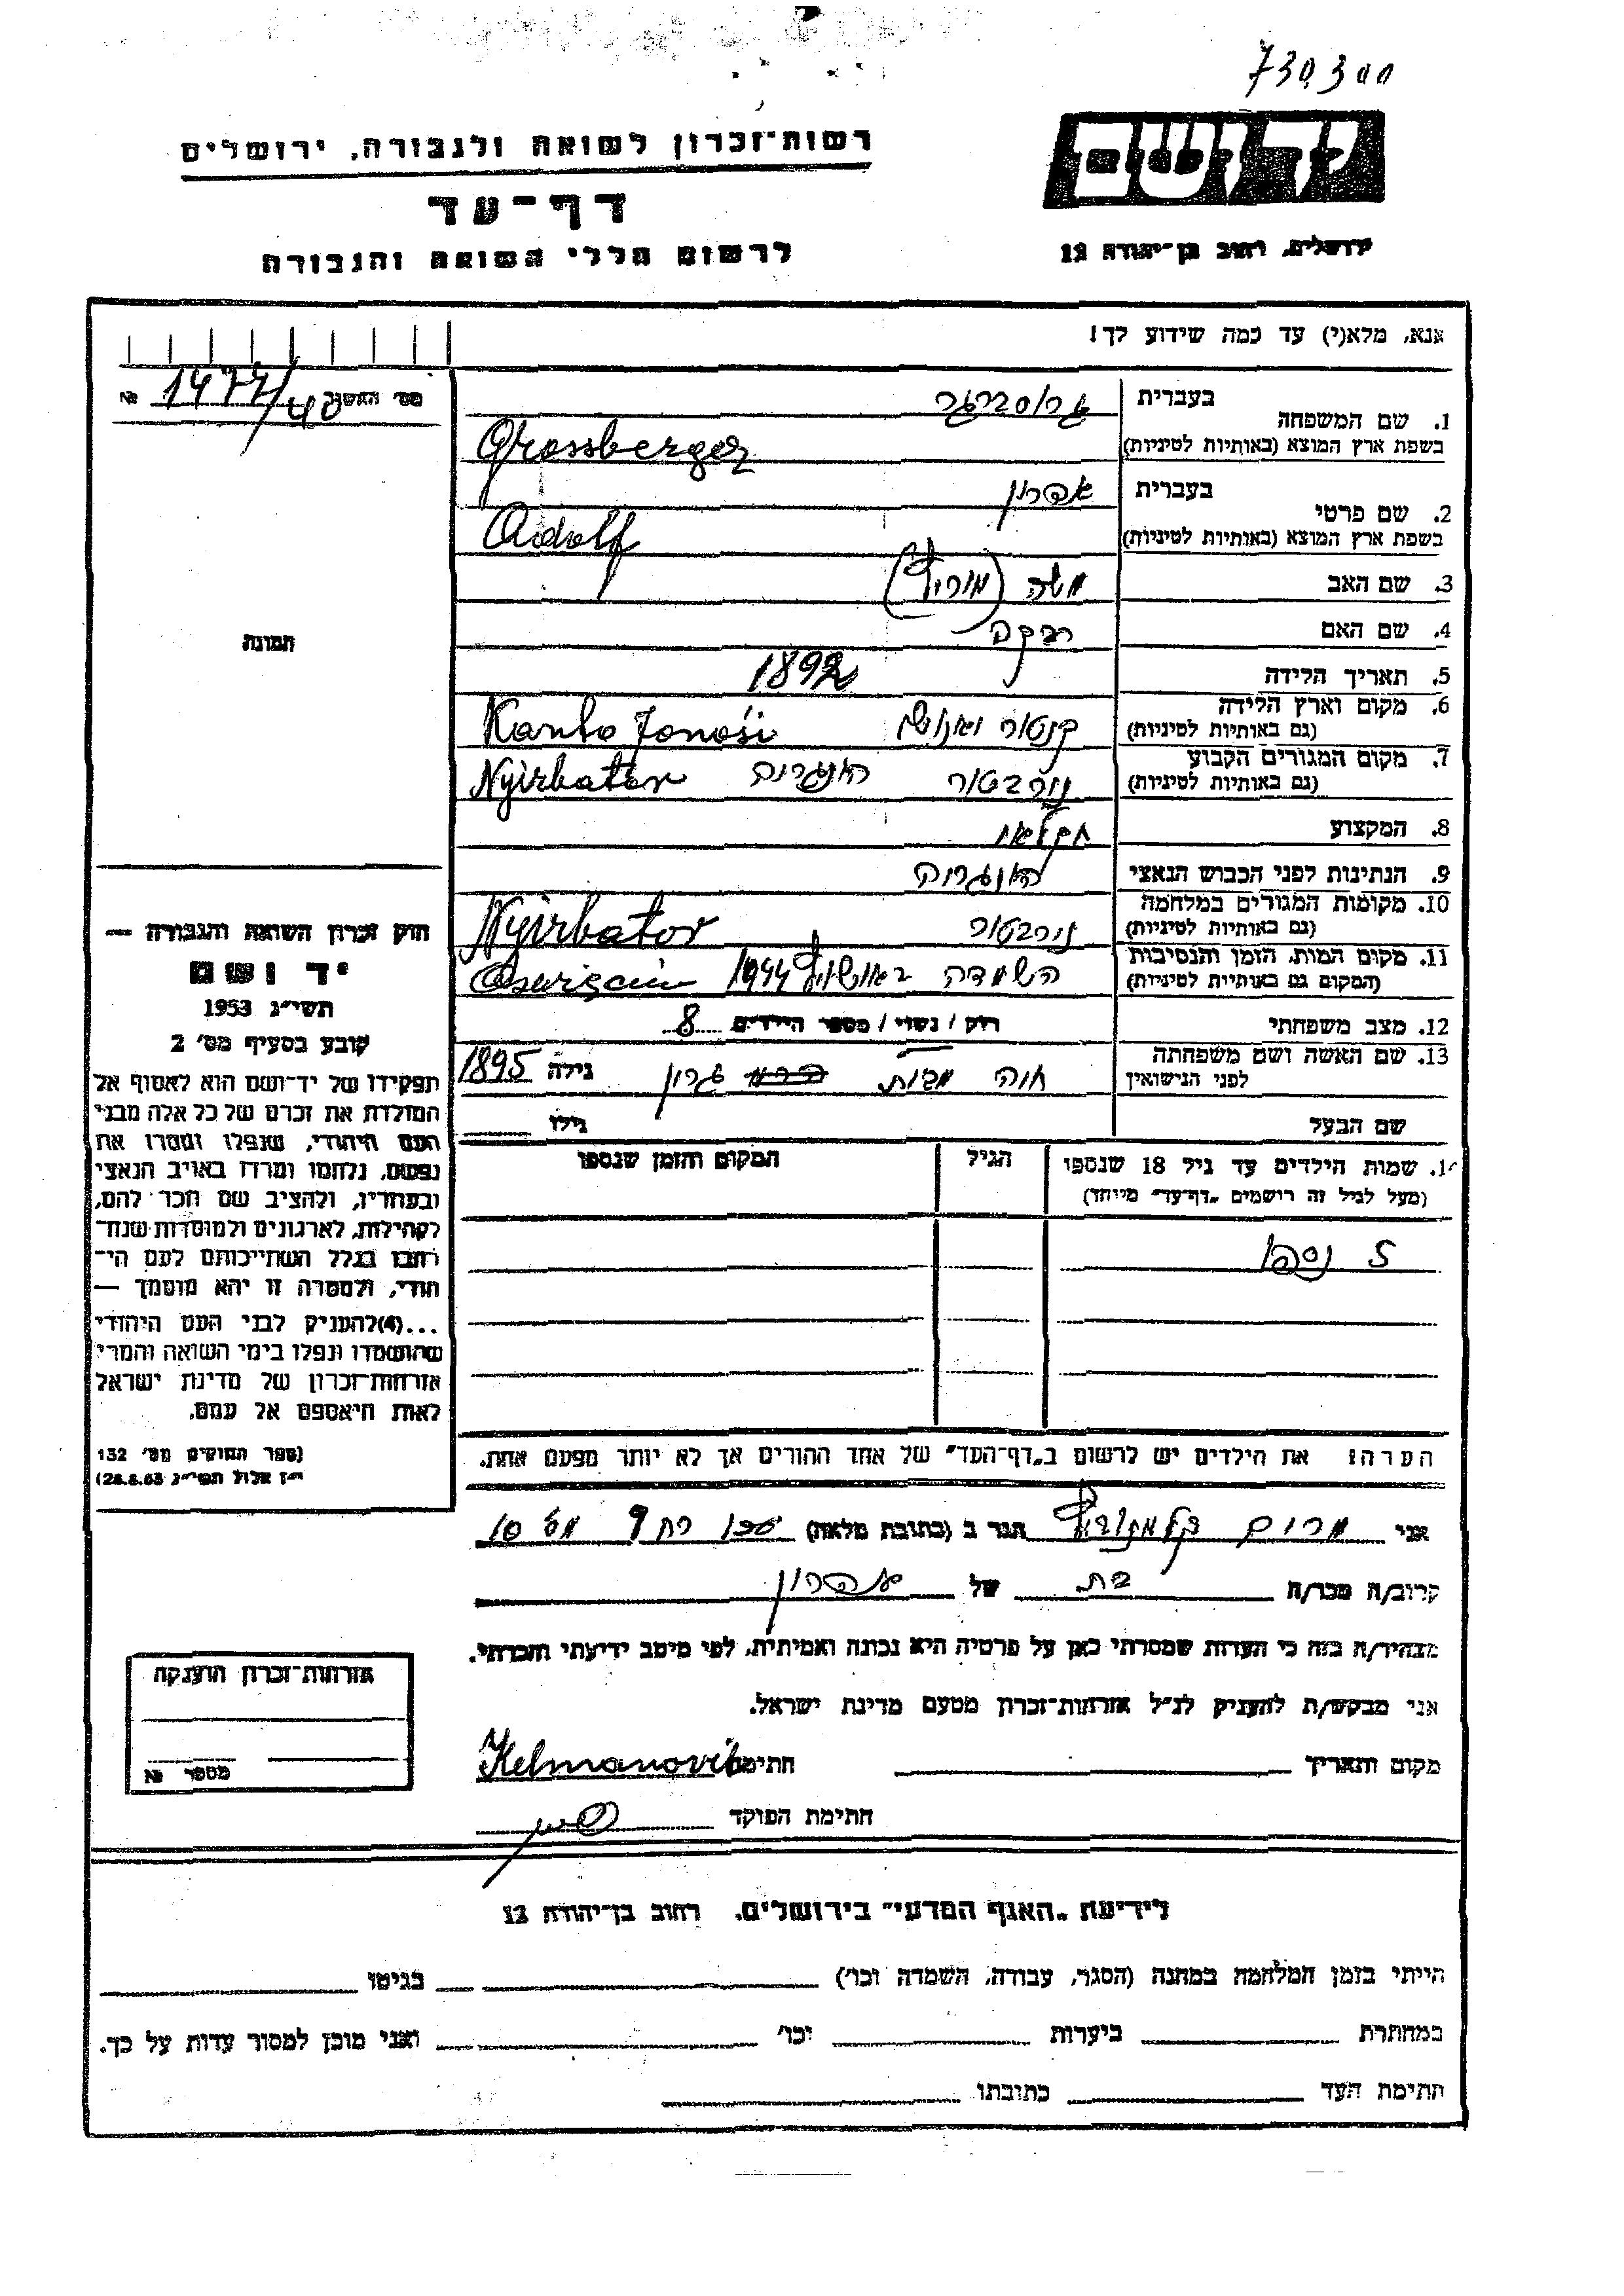 730300
יד ושם
ירושלים, רחוב בן־יהודה 12
רשות־זכרון לשואה ולגבורה, ירושלים
דף־עד
לרשום חללי השואה והגבורה
אנא, מלא(י) עד כמה שידוע לך!
מס׳ האשף 1477/40 №
1. שם המשפחה
בעברית גרוסברגר
בשפת ארץ המוצא (באותיות לטיניות) Grossberger
2. שם פרטי
בעברית אהרון
בשפת ארץ המוצא (באותיות לטיניות) Adolf
3. שם האב משה (מוריץ)
4. שם האם רבקה
5. תאריך הלידה 1892
6. מקום וארץ הלידה
(גם באותיות לטיניות) קנטור יאנושי Kanto Jonosi
7. מקום המגורים הקבוע
(גם באותיות לטיניות) נירבטור הונגריה Nyirbator
8. המקצוע חקלאי
9. הנתינות לפני הכבוש הנאצי הונגריה
10. מקומות המגורים במלחמה
(גם באותיות לטיניות) נירבטור Nyirbator
11. מקום המות, הזמן והנסיבות
(המקום גם באותיות לטיניות) השמדה באושויץ 1944
12. מצב משפחתי רווק / נשוי / מספר הילדים 8
13. שם האשה ושם משפחתה
לפני הנישואין חוה מבית גרין גילה 1895
שם הבעל גילו
14. שמות הילדים עד גיל 18 שנספו
(מעל לגיל זה רושמים „דף־עד״ מיוחד)
הגיל
המקום והזמן שנספו
5 נספו
הערה: את הילדים יש לרשום ב„דף־העד״ של אחד ההורים אך לא יותר מפעם אחת.
תמונה
חוק זכרון השואה והגבורה —
יד ושם
תשי״ג 1953
קובע בסעיף מס׳ 2
תפקידו של יד־ושם הוא לאסוף אל
המולדת את זכרם של כל אלה מבני
העם היהודי, שנפלו ומסרו את
נפשם, נלחמו ומרדו באויב הנאצי
ובעוזריו, ולהציב שם וזכר להם,
לקהילות, לארגונים ולמוסדות שנח־
רבו בגלל השתייכותם לעם הי־
הודי, ולמטרה זו יהא מוסמך —
...(4)להעניק לבני העם היהודי
שהושמדו ונפלו בימי השואה והמרי
אזרחות־זכרון של מדינת ישראל
לאות היאספם אל עמם.
(ספר החוקים מס׳ 132
י״ז אלול תשי״ג 28.8.53)
אני מרים קלמנוביץ הגר ב (כתובת מלאה) יפו רח 9 מס 10
קרוב/ה מכר/ה בת של אהרון
מצהיר/ה בזה כי העדות שמסרתי כאן על פרטיה היא נכונה ואמיתית, לפי מיטב ידיעתי והכרתי.
אני מבקש/ת להעניק לנ״ל אזרחות־זכרון מטעם מדינת ישראל.
מקום ותאריך חתימה Kelmanovik
חתימת הפוקד
אזרחות־זכרון הוענקה
מספר №
לידיעת „האגף המדעי״ בירושלים, רחוב בן־יהודה 12
הייתי בזמן המלחמה במחנה (הסגר, עבודה, השמדה וכו׳) בגיטו
במחתרת ביערות וכו׳ ואני מוכן למסור עדות על כך.
חתימת העד כתובתו